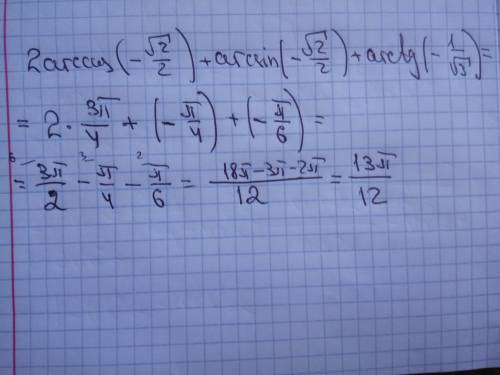 2arccos(-√2/2)+arcsin(-√2/2)+arctg(-1/√3)=
= 2 · 3π/4 + (-π/4) + (-π/6) =
= ⁶⁾3π/2 - ³⁾π/4 - ²⁾π/6 = (18π-3π-2π)/12 = 13π/12